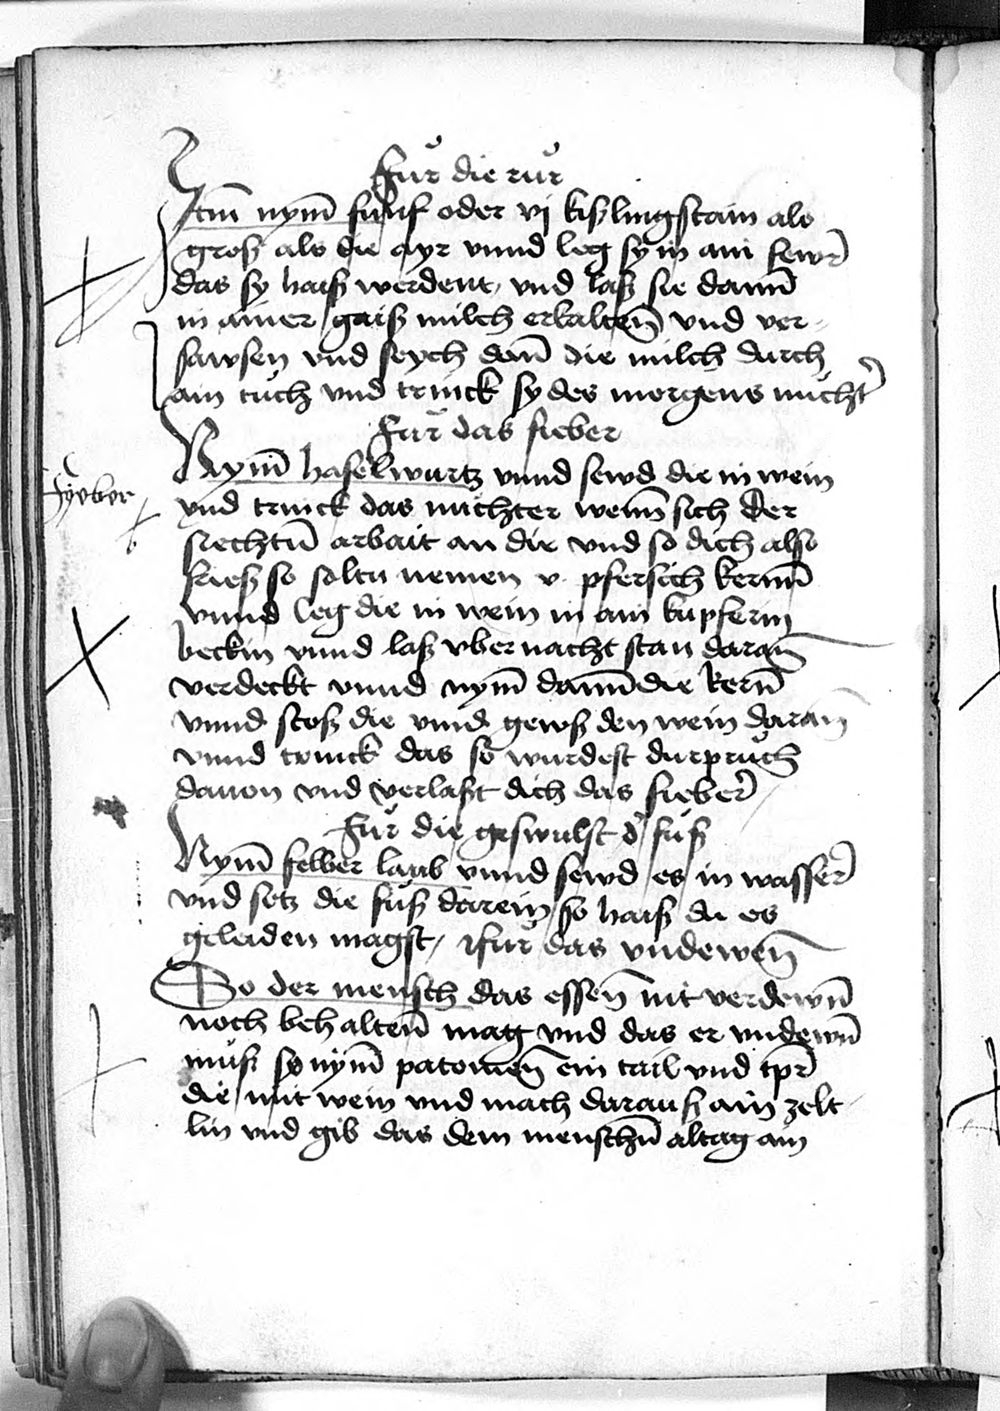 Fur die rur
Itm̄ nym̄ funf oder vj kiszlingstain als
grosz als die ayr vnnd leg sy in ain fewr
das sy haisz werdent, vnd lasz sie dann̄
in ainer gaisz milch erkalten̄ vnd ver-
sawsen vnd seych dan̄ die milch durch
ain tuch vnd trinck sy des morgens nucht̓
Fur das fieber
Nym̄ haselwurtz vnnd sewd die in wein
fyeber
vnd trinck das nuchter wenn̄ sich der
siechtū arbait an die vnd so dich also
friesz so soltu nemen v pfersich kernn̄
vnnd leg die in wein in ain kupferin
beckin vnnd lasz vber nacht stan daran̄
verdeckt vnnd nym̄ dann̄ die kern̄
vnnd stosz die vnnd gewsz den wein daran̄
vnnd trinck das so wurdest durpruch
dauon vnd verlaszt dich das fieber
Fur die geswulst d̓ fusz
Nym̄ felber laub vnnd sewd es in wasser
vnd setz die fusz darein so haisz du es
geleiden magst, Fur das vndewen̄
So der mensch das essen̄ nit verdewn̄
noch behalten̄ mag vnd das er vndewn̄
musz so nym̄ patonien̄ ein tail vnd tpr̄
die mit wein vnd mach darausz ain zelt-
lin vnd gib das dem menschn̄ altag ain